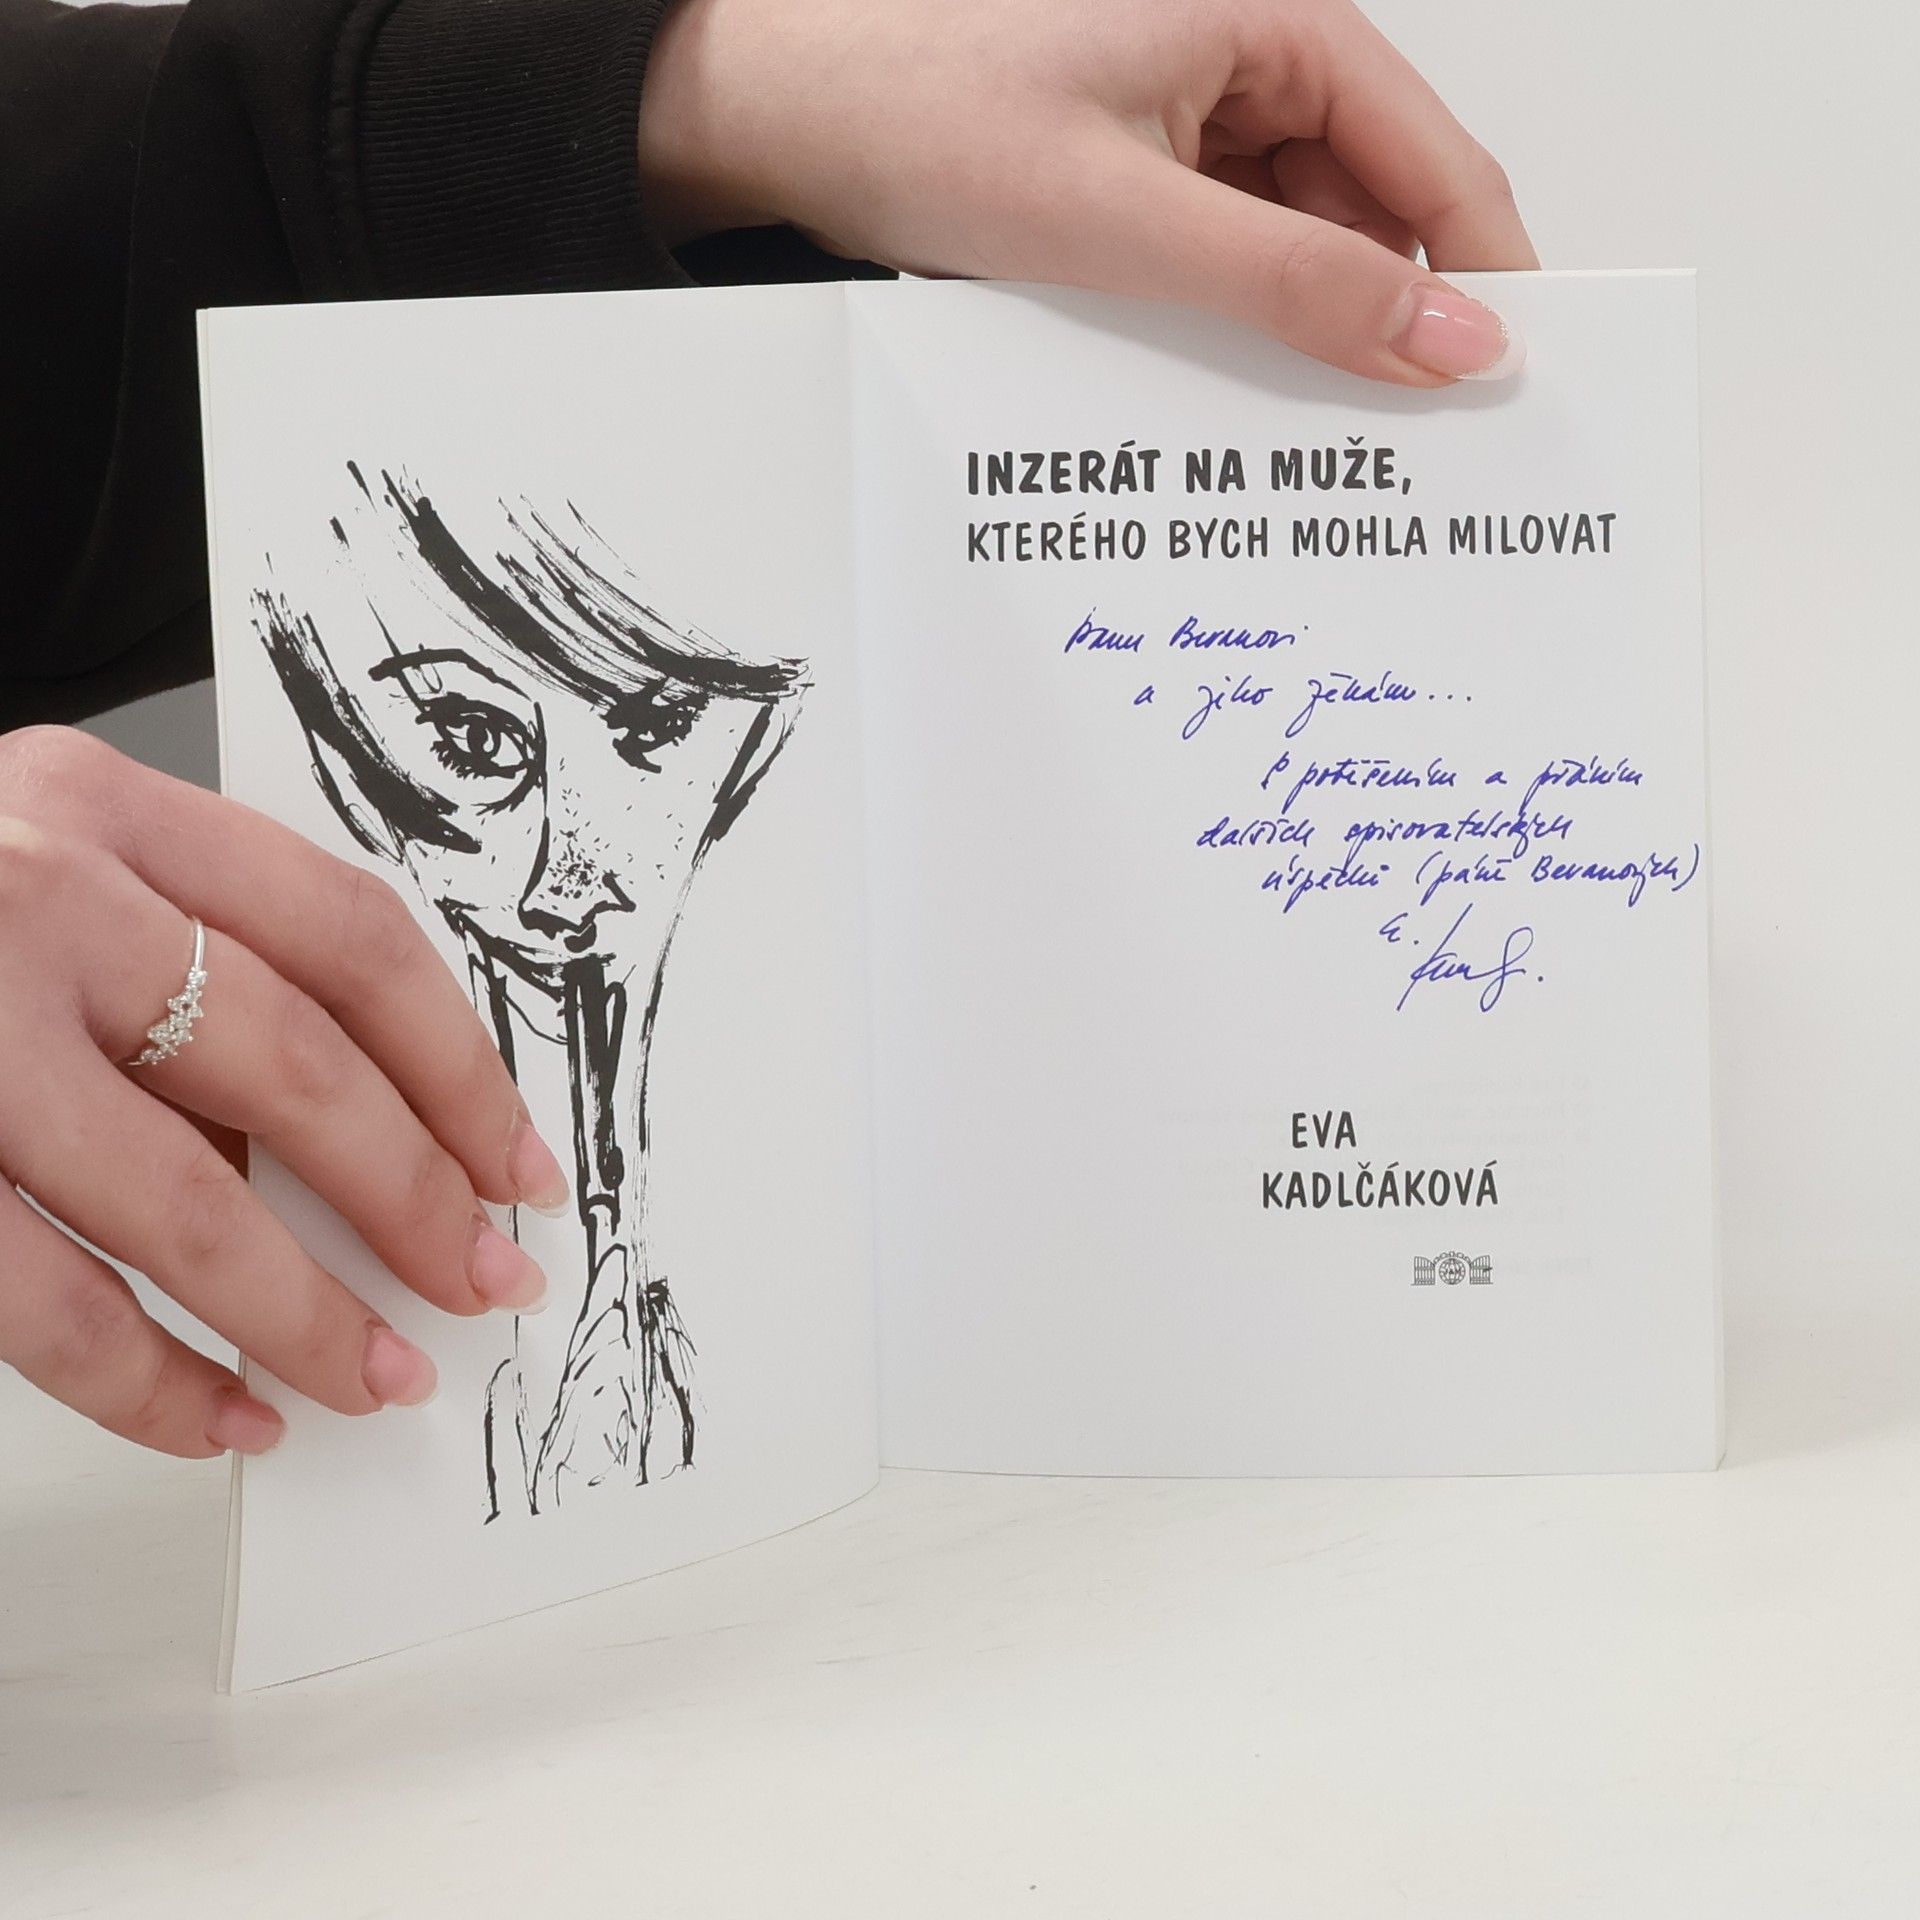 INZERÁT NA MUŽE,
KTERÉHO BYCH MOHLA MILOVAT
panu Bevanovi
a jeho
S potěšením a přáním
dalších spisovatelských
úspěchů (páně Bevanových)
E.
EVA
KADLČÁKOVÁ